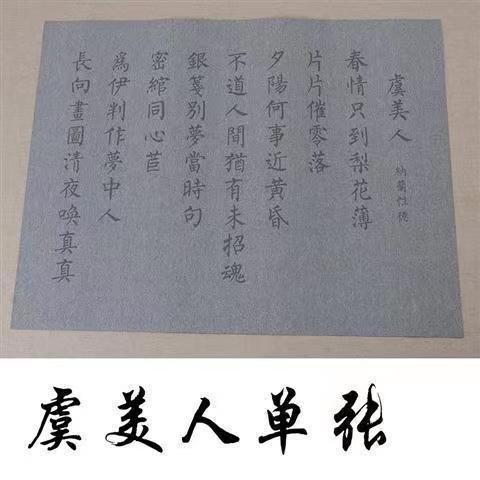 虞美人
納蘭性德
春情只到梨花薄
片片催零落
夕陽何事近黄昏
不道人間猶有未招魂
銀箋别夢當時句
密綰同心苣
為伊判作夢中人
長向畫圖清夜喚真真
虞美人单张